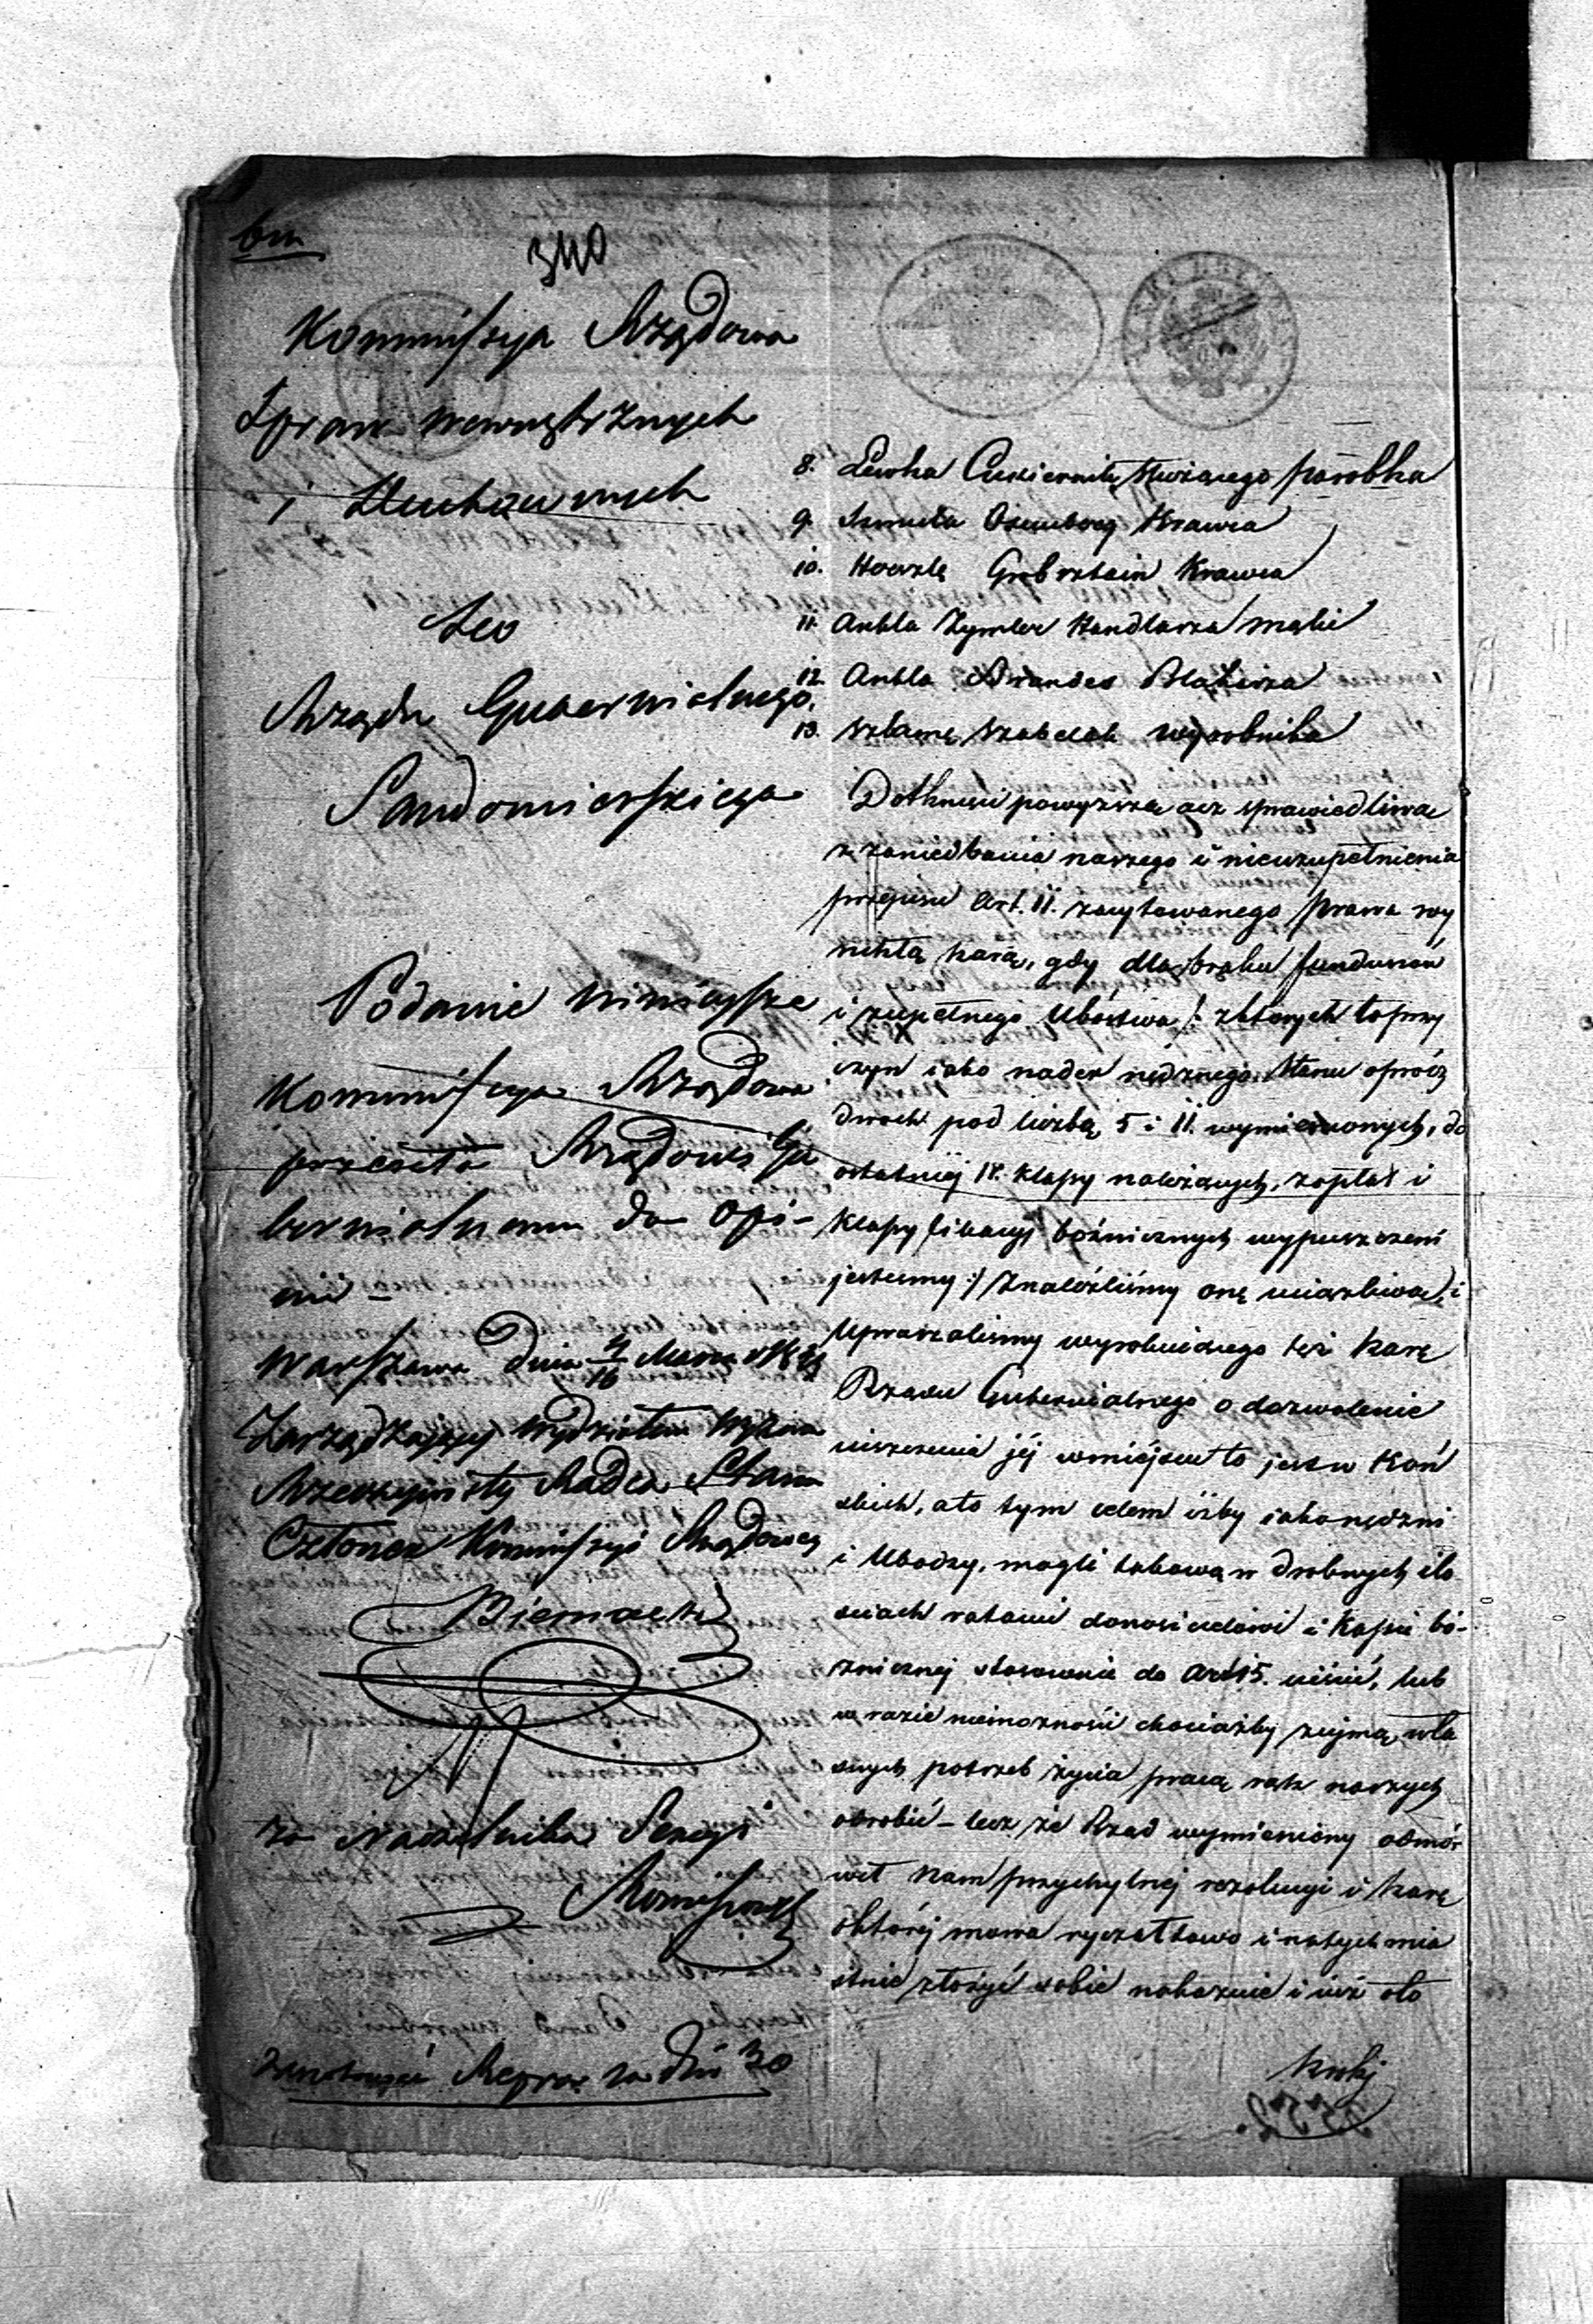 bm
340
Kommissya Rządowa
Spraw Wewnętrznych
i Duchownych
Do
Rządu Gubernialnego
Sandomierskiego
Podanie niniejsze
Kommissya Rządowa
przesyła Rządowi Gu
bernialnemu do opi-
nii –
Warszawa Dnia 4/16 Marca
Zarządzający Wydziałem Wyznań
Rzeczywisty Radca Stanu
Członek Kommissyi Rządowej
Biernacki
za Naczelnika Sekcyi
8. Lewka Cukiernik służącego parobka
9. Szmula Krawca
10. Herszlę Grobsztain Krawca
11. Ankla Zymler Handlarza mąki
12. Ankla Brandes Blacharza
13. Szlamę Szabelak wyrobnika
Dotknięci powyższą acz sprawiedliwą
z zaniedbania naszego i nieuzupełnienia
przepisu Art. 11. zacytowanego prawa wy
nikłą karą, gdy dla braku funduszów
i zupełnego Ubóstwa /: z których to przy
czyn iako nader nędznego Stanu oprócz
dwóch pod liczbą 5 i 11. wymienionych, do
ostatniej klasy należących, z opłat i
klasyfikacyi bożnicznych wypuszczeni
jesteśmy :/ Znaleźliśmy onę uciążliwą, i
Upraszaliśmy też karę
Rządu Gubernialnego o dozwolenie
uiszczenia jéj w miéjscu to jest w Koń
skich, a to tym celem iżby iako nędzni
i Ubodzy, mogli takową w drobnych ilo
sciach ratami donosicielowi i Kassie bó-
znicznej stosownie do Art 15. uiścić, lub
w razie niemożności chociażby z ujmą wła
snych potrzeb życia pracą rąk naszych
odrobić – lecz że Rząd wymieniony odmó-
wił nam przychylnej rezolucyi i karę
o której mowa ryczałtowo i natychmia
stnie złożyć sobie nakazuie i iuż oto